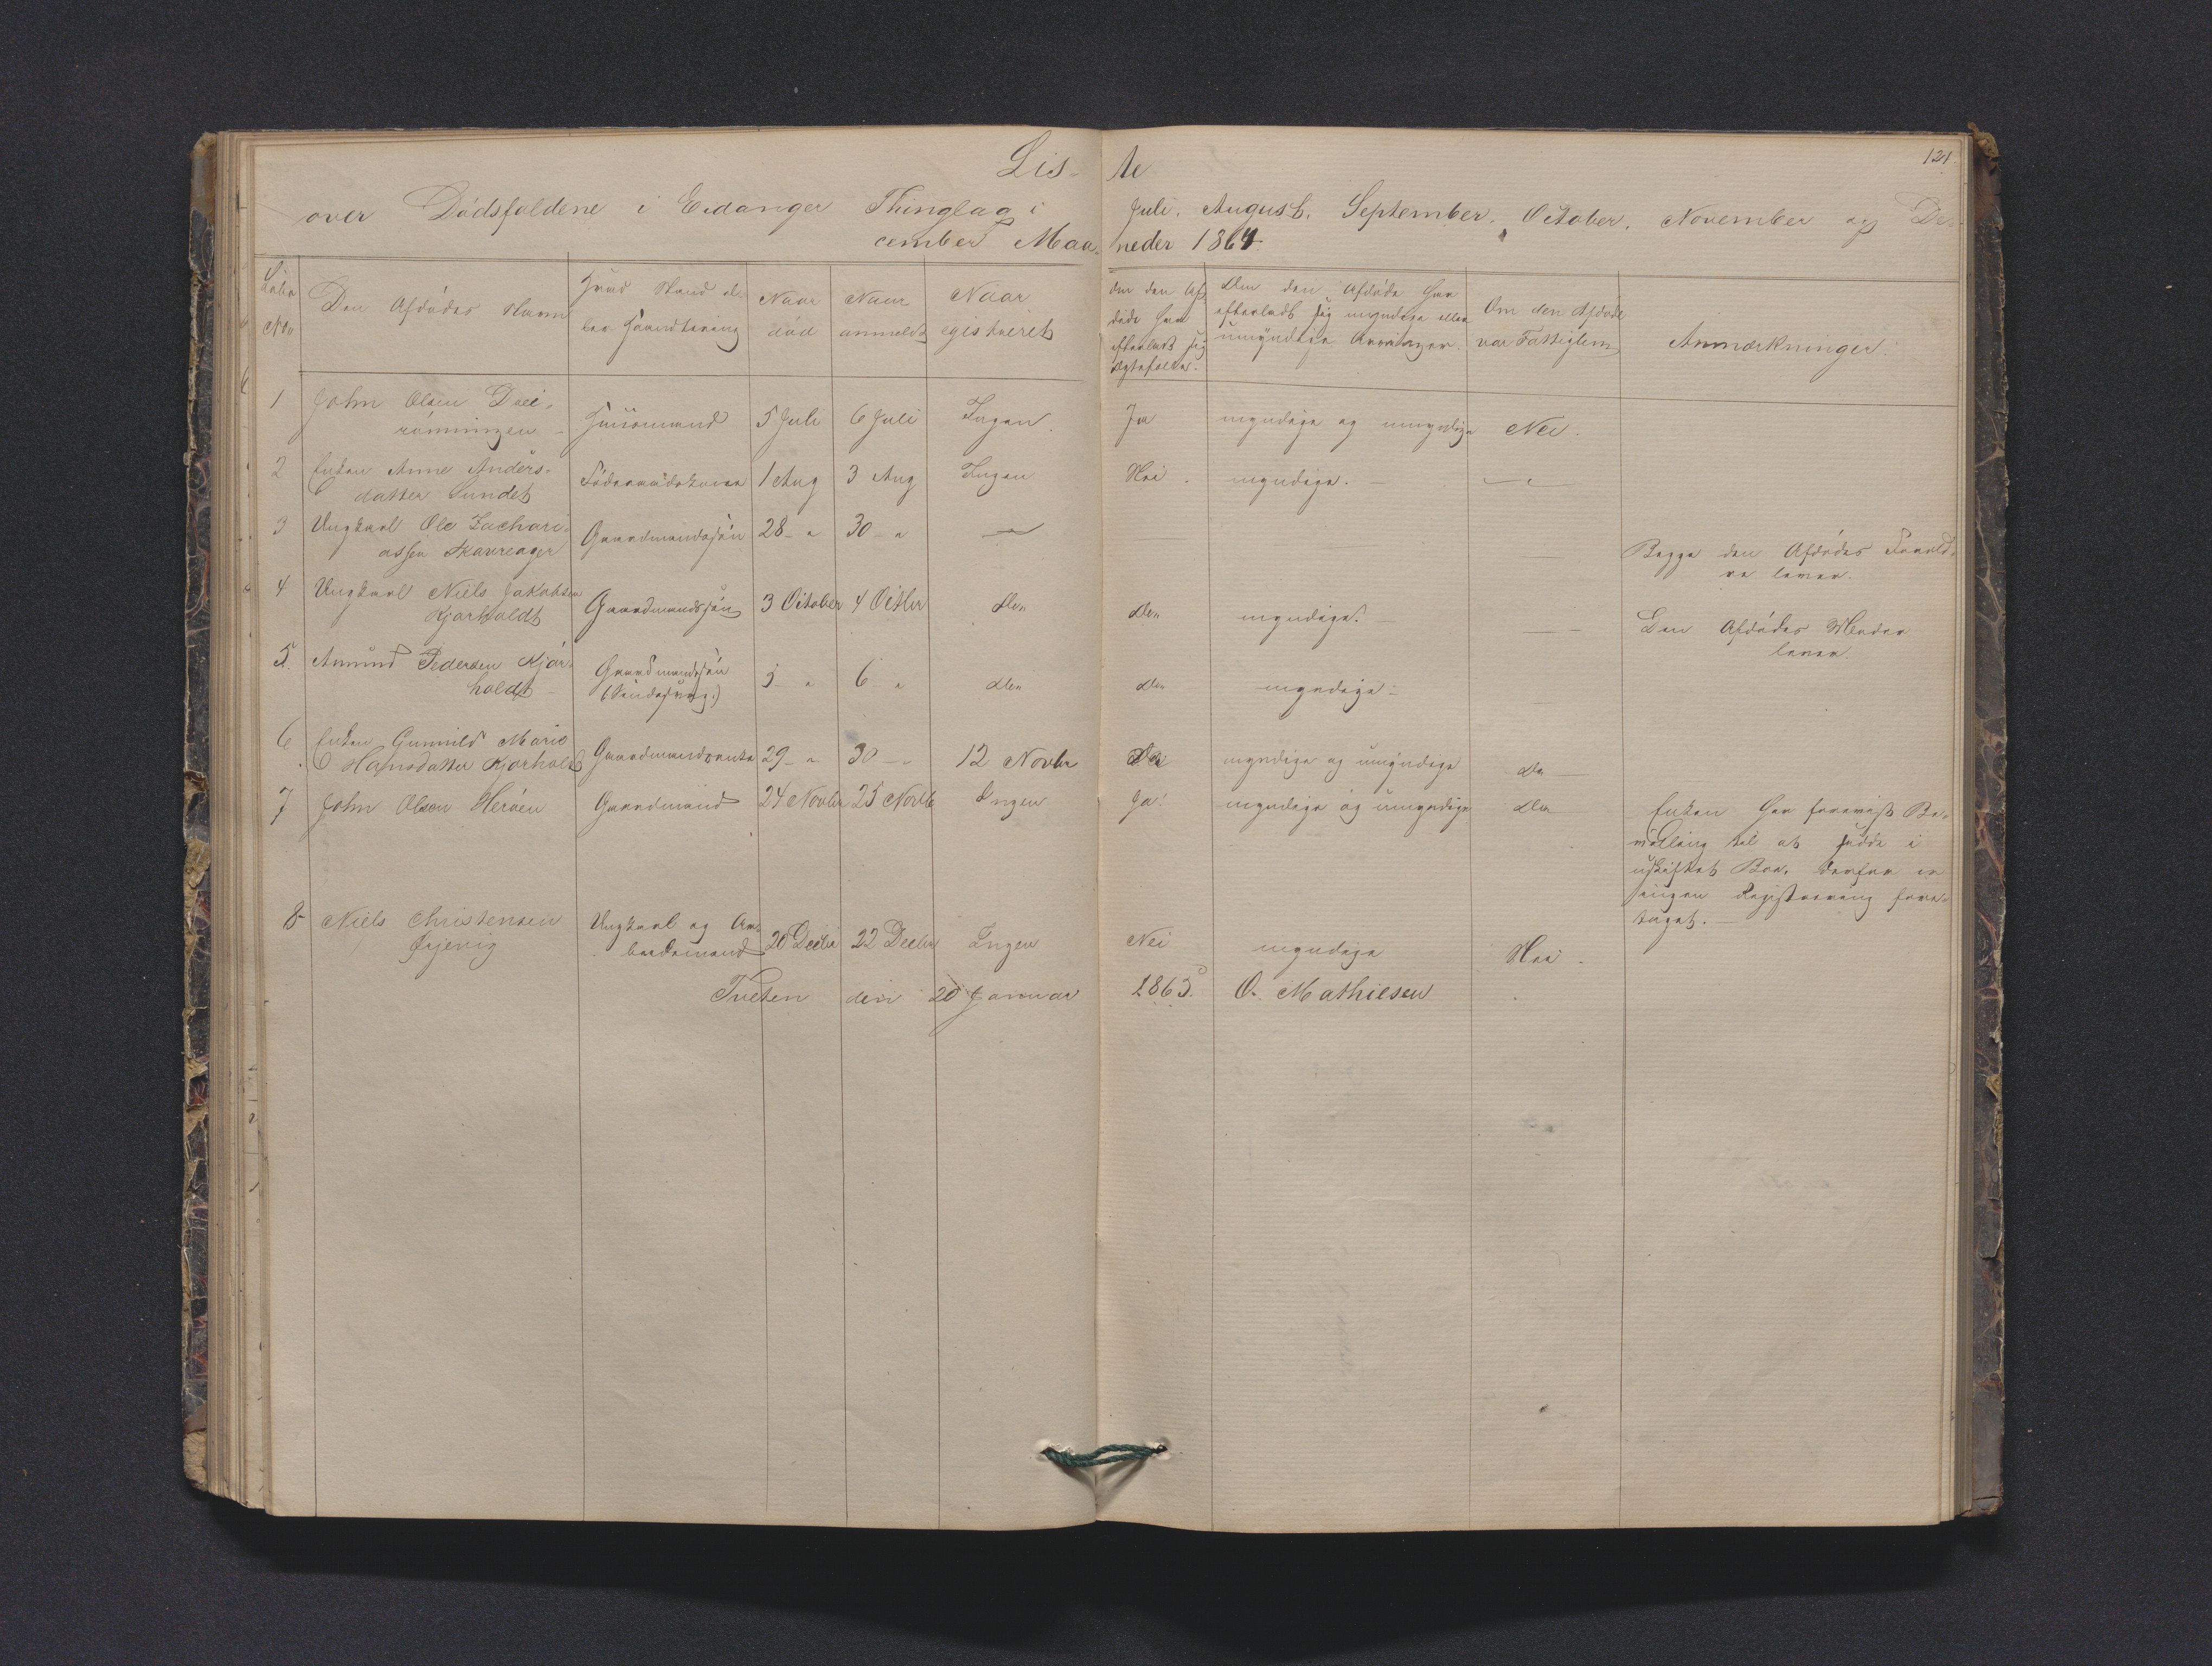 121.
Liste
over Dödsfaldene i Eidanger Thinglag i Juli, August, September, October, November og De-
cember Maaneder 1864
Löbe
No
Den Afdödes Navn
Hvad Stand el-
ler Haandtering
Naar
död
Naar
anmeldt
Naar
egistreret
Om den Af-
döde har
efterladt sig
Ægtefælle.
Om den Afdöde har
efterladt sig myndige eller
umyndige Arvinger.
Om den Afdöde
var Fattiglem
Anmærkninger.
1 John Olsen
römningen - Huusmand 5 Juli 6 Juli Ingen. Ja myndige og umyndige Nei.
2 Enken Anne Anders-
datter Sundet Föderaadskone 1 Aug 3 Aug Ingen Nei. myndige. - - " -
3 Ungkarl Ole Zachari-
assen Skavreager Gaardmandssön 28 - " 30 - " - " - Begge den Afdödes Foræld-
re lever.
4 Ungkarl Niels Jakobsen
Kjørholdt Gaardmandssön 3 October 4 Octbr do do myndige. - Den Afdödes Moder
lever.
5. Amund Pedersen Kjør-
holdt - Gaardmandssön
5 - " 6 - " do do myndige -
6 Enken Gunnild Marie
Hansdatter Kjørholdt Gaardmandsenke 29 - " 30 - " 12 Novbr Nei myndige og umyndige do -
7 John Olsen Heröen Gaardmand 24 Novbr 25 Novbr Ingen Ja! myndige og umyndige do Enken har foreviist Be-
villing til at sidde i
uskiftet Boe, derfor er
ingen Registrering fore-
taget. -
8 - Niels Christensen
Ungkarl og Ar-
beidsmand 20 Decbr 22 Decbr Ingen Nei myndige Nei.
Tveten den 20 Januar 1865. O. Mathiesen